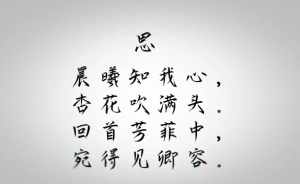 思
晨曦知我心，
杏花吹满头．
回首芳菲中，
宛得见卿容．